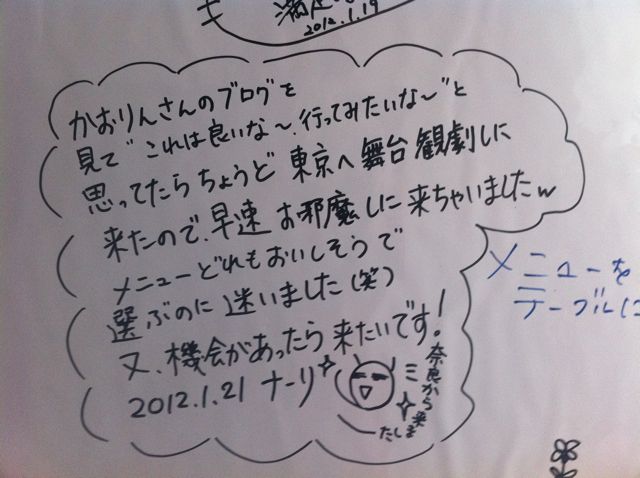 満足
2012.1.19
かおりんさんのブログを
見て"これは良いな〜行ってみたいな〜"と
思ってたらちょうど東京へ舞台観劇しに
来たので、早速お邪魔しに来ちゃいましたw
メニューどれもおいしそうで
選ぶのに迷いました(笑)
又、機会があったら来たいです!
2012.1.21 ナーリ
奈良から来
たしま
メニューを
テーブルに